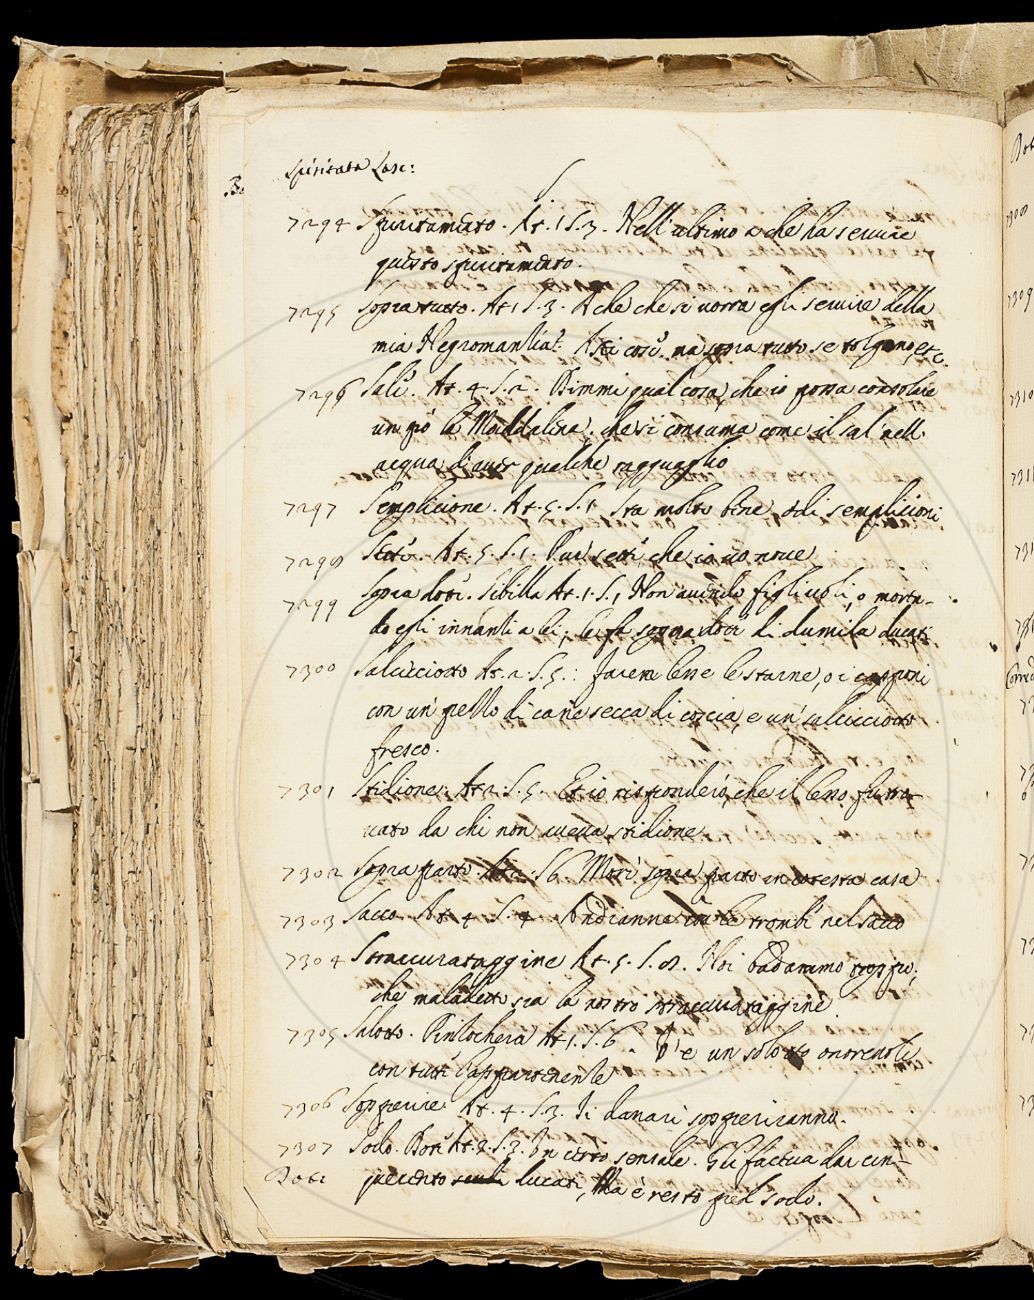 Spiritata Lasc:
S
7294 Spiritamento. At. 1 S. 3. Nell'ultimo a che ha servire
questo spiritamento.
7295 Sopra tutto. At 1 S. 3. A che che si vorra egli servire della
mia Negromantia? Asti così, ma sopra tutto se tolgono, etc.
7296 Sale. At. 4. S. 2. Dimmi qual cosa, che io possa consolare
un pò la Maddalena, che si consuma come il sal nell
acqua di aver qualche ragguaglio
7297 Semplicione. At. 5. S. 1 Sta molto bene, o di semplicioni
7298 Stete. At. 5. S. 1. Pur sete, che io vo nove
7299 Sopra dote. Sibilla At. 1. S. 1 Non avendo figlivoli, o morta-
do egli innanti a lei, le fe sopra dote di dumila ducati
7300 Salsicciotto At. 2. S. 5.: Javere lesse le starne, o i capponi
con un pezzo di carne secca di coscia, e un' salsicciotto
fresco.
7301 Stidione. At 2. S. 5. Et io risponderò, che il lesso fu tro-
vato da chi non aveva stidione
7302 Sopra parto. At 2. S 6. Morì sopra parto in cotesta casa
7303 Sacco. At 4. S. 4. Andianne con le trombe nel sacco
7304 Straccurataggine At. 5. S. 8. Noi badammo troppo,
che maladetta sia la nostra straccurataggine.
7305 Salotto. Pinzochera At 1. S. 6. V'è un salotto onorevole
con tutte l'appartenenze
7306 Sopperire. At. 4. S. 3. Ii danari sopperiranno.
7307 Sodo. Dote At. 2. S. 3. Un certo sensale. Gli faceva dar cin-
Dote quecento scudi ducati, Ma è resto pel sodo.